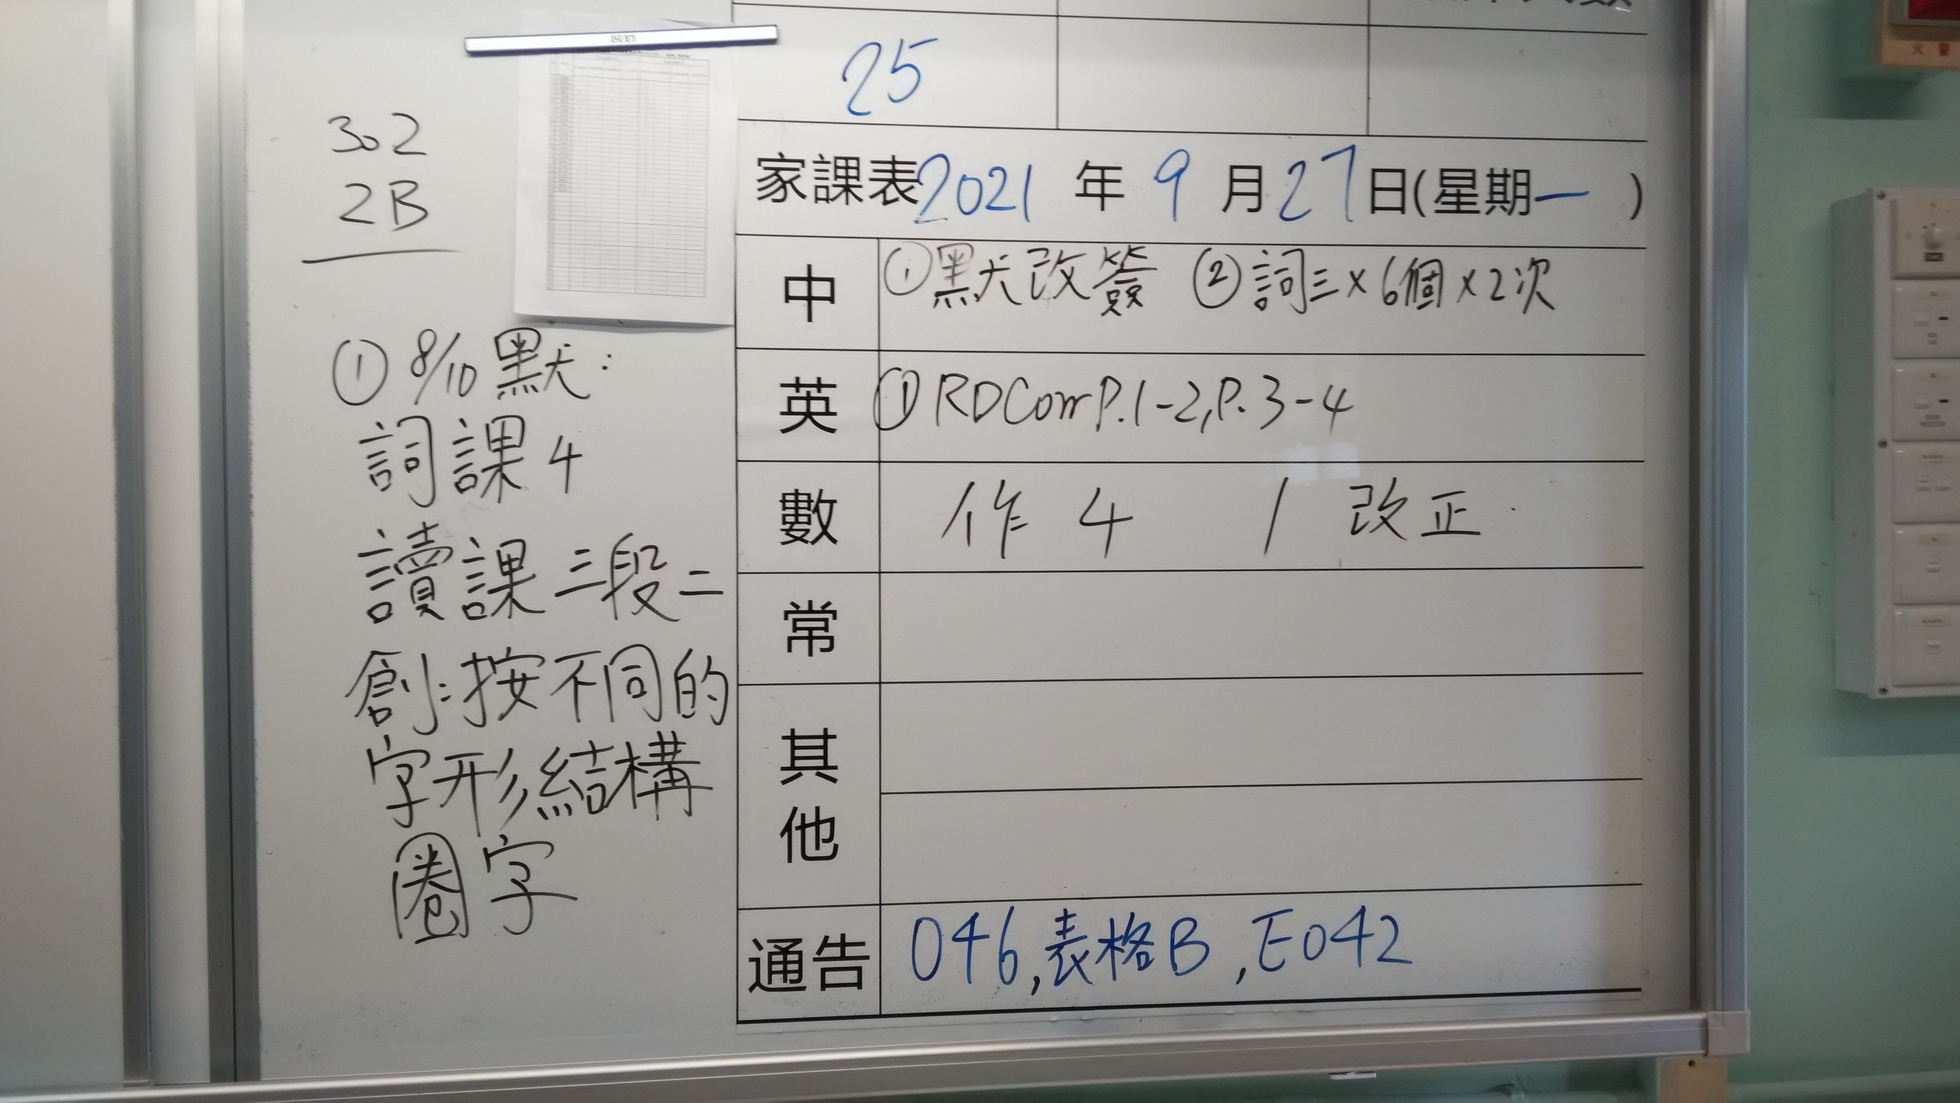 25
302
2B
家課表2021年9月27日(星期一)
中 ①默改簽 ②詞三×6個×2次
英 ①RDCorr P.1-2, P.3-4
數 作 4 / 改正
常
其他
通告 046,表格B,E042
① 8/10 默:
詞課4
讀課三段二
創:按不同的
字形結構
圈字